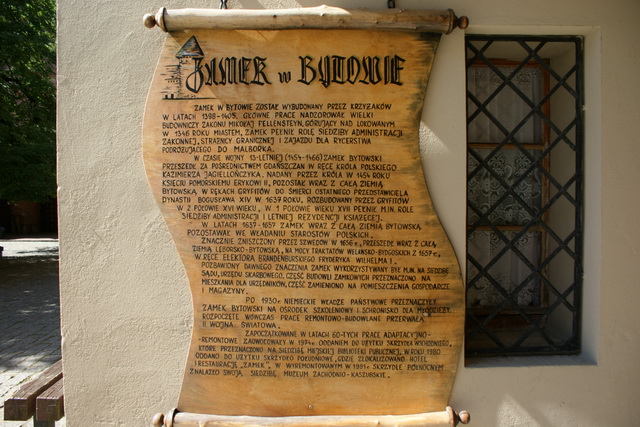 ZAMEK w BYTOWIE
ZAMEK W BYTOWIE ZOSTAŁ WYBUDOWANY PRZEZ KRZYŻAKÓW
W LATACH 1398-1405. GŁÓWNE PRACE NADZOROWAŁ WIELKI
BUDOWNICZY ZAKONU MIKOŁAJ FELLENSTEYN, GÓRUJĄCY NAD LOKOWANYM
W 1346 ROKU MIASTEM, ZAMEK PEŁNIŁ ROLĘ SIEDZIBY ADMINISTRACJI
ZAKONNEJ, STRAŻNICY GRANICZNEJ I ZAJAZDU DLA RYCERSTWA
PODRÓŻUJĄCEGO DO MALBORKA.
W CZASIE WOJNY 13-LETNIEJ (1454-1466) ZAMEK BYTOWSKI
PRZESZEDŁ ZA POŚREDNICTWEM GDAŃSZCZAN W RĘCE KRÓLA POLSKIEGO
KAZIMIERZA JAGIELLOŃCZYKA, NADANY PRZEZ KRÓLA W 1454 ROKU
KSIĘCIU POMORSKIEMU ERYKOWI II, POZOSTAŁ WRAZ Z CAŁĄ ZIEMIĄ
BYTOWSKĄ W RĘKACH GRYFITÓW DO ŚMIERCI OSTATNIEGO PRZEDSTAWICIELA
DYNASTII BOGUSŁAWA XIV W 1637 ROKU, ROZBUDOWANY PRZEZ GRYFITÓW
W 2 POŁOWIE XVI WIEKU, W 1 POŁOWIE WIEKU XVII PEŁNIŁ M.IN. ROLE
SIEDZIBY ADMINISTRACJI I LETNIEJ REZYDENCJI KSIĄŻĘCEJ.
W LATACH 1637-1657 ZAMEK WRAZ Z CAŁĄ ZIEMIĄ BYTOWSKĄ
POZOSTAWAŁ WE WŁADANIU STAROSTÓW POLSKICH.
ZNACZNIE ZNISZCZONY PRZEZ SZWEDÓW W 1656 r., PRZESZEDŁ WRAZ Z CAŁĄ
ZIEMIĄ LĘBORSKO-BYTOWSKĄ, NA MOCY TRAKTATÓW WELAWSKO-BYDGOSKICH Z 1657 r.,
W RĘCE ELEKTORA BRANDENBURSKIEGO FRYDERYKA WILHELMA I.
POZBAWIONY DAWNEGO ZNACZENIA ZAMEK WYKORZYSTYWANY BYŁ M.IN. NA SIEDZIBĘ
SĄDU, URZĘDU SKARBOWEGO, CZĘŚĆ BUDOWLI ZAMKOWYCH PRZEZNACZONO NA
MIESZKANIA DLA URZĘDNIKÓW, CZĘŚĆ ZAMIENIONO NA POMIESZCZENIA GOSPODARCZE
I MAGAZYNY.
PO 1930 r. NIEMIECKIE WŁADZE PAŃSTWOWE PRZEZNACZYŁY
ZAMEK BYTOWSKI NA OŚRODEK SZKOLENIOWY I SCHRONISKO DLA MŁODZIEŻY.
ROZPOCZĘTE WÓWCZAS PRACE REMONTOWO-BUDOWLANE PRZERWAŁA
II WOJNA ŚWIATOWA.
ZAPOCZĄTKOWANE W LATACH 60-TYCH PRACE ADAPTACYJNO-
-REMONTOWE ZAOWOCOWAŁY W 1974 r. ODDANIEM DO UŻYTKU SKRZYDŁA WSCHODNIEGO,
KTÓRE PRZEZNACZONO NA SIEDZIBĘ MIEJSKIEJ BIBLIOTEKI PUBLICZNEJ, W ROKU 1980
ODDANO DO UŻYTKU SKRZYDŁO POŁUDNIOWE, GDZIE ZLOKALIZOWANO HOTEL
I RESTAURACJĘ „ZAMEK”, W WYREMONTOWANYM W 1991 r. SKRZYDLE PÓŁNOCNYM
ZNALAZŁO SWOJĄ SIEDZIBĘ MUZEUM ZACHODNIO-KASZUBSKIE.